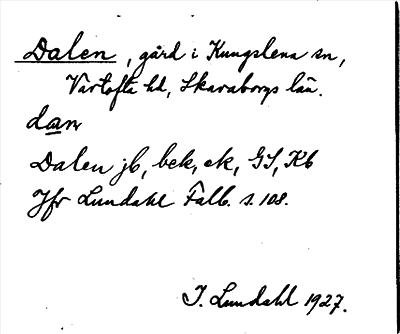 Dalen, gård i Kungslena sn,
Vartofta hd, Skaraborgs län.
dan
Dalen jb, bek, ek, GS, Kb
Jfr Lundahl Falb. s. 108.
I. Lundahl 1927.